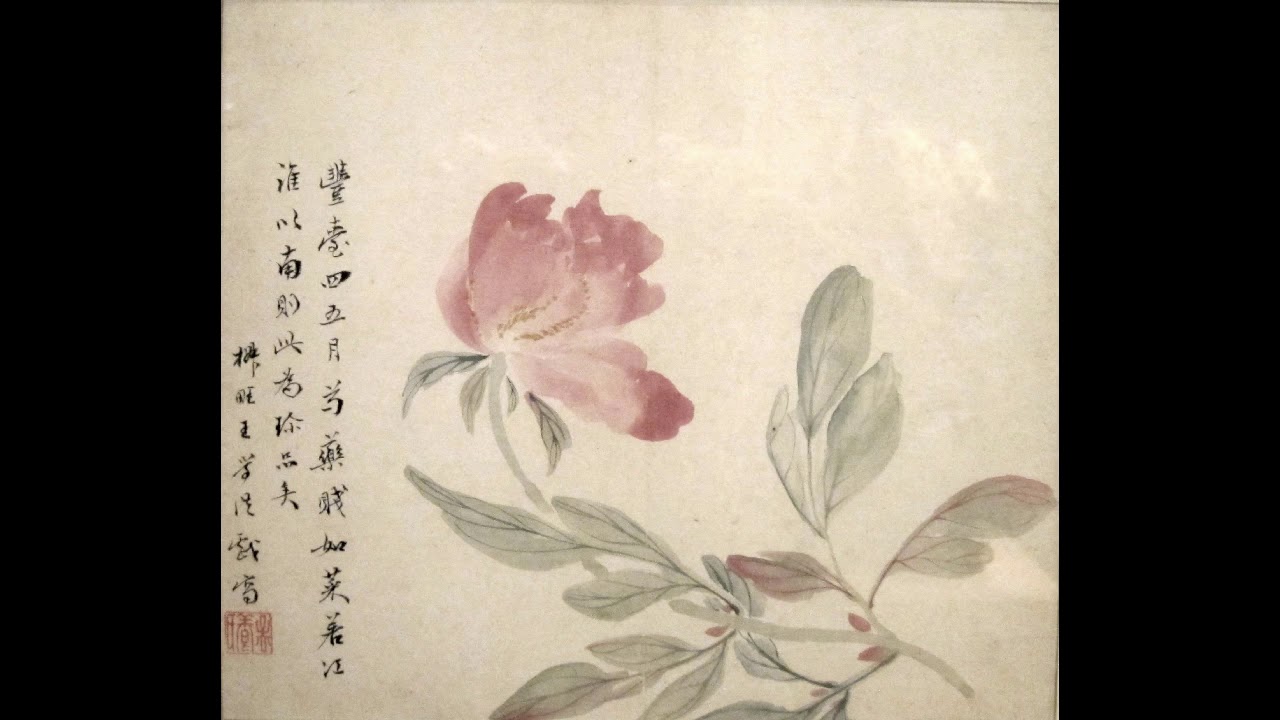 豐臺四五月芍藥賤如菜若江
淮以南則此為珍品矣
王學浩戲寫